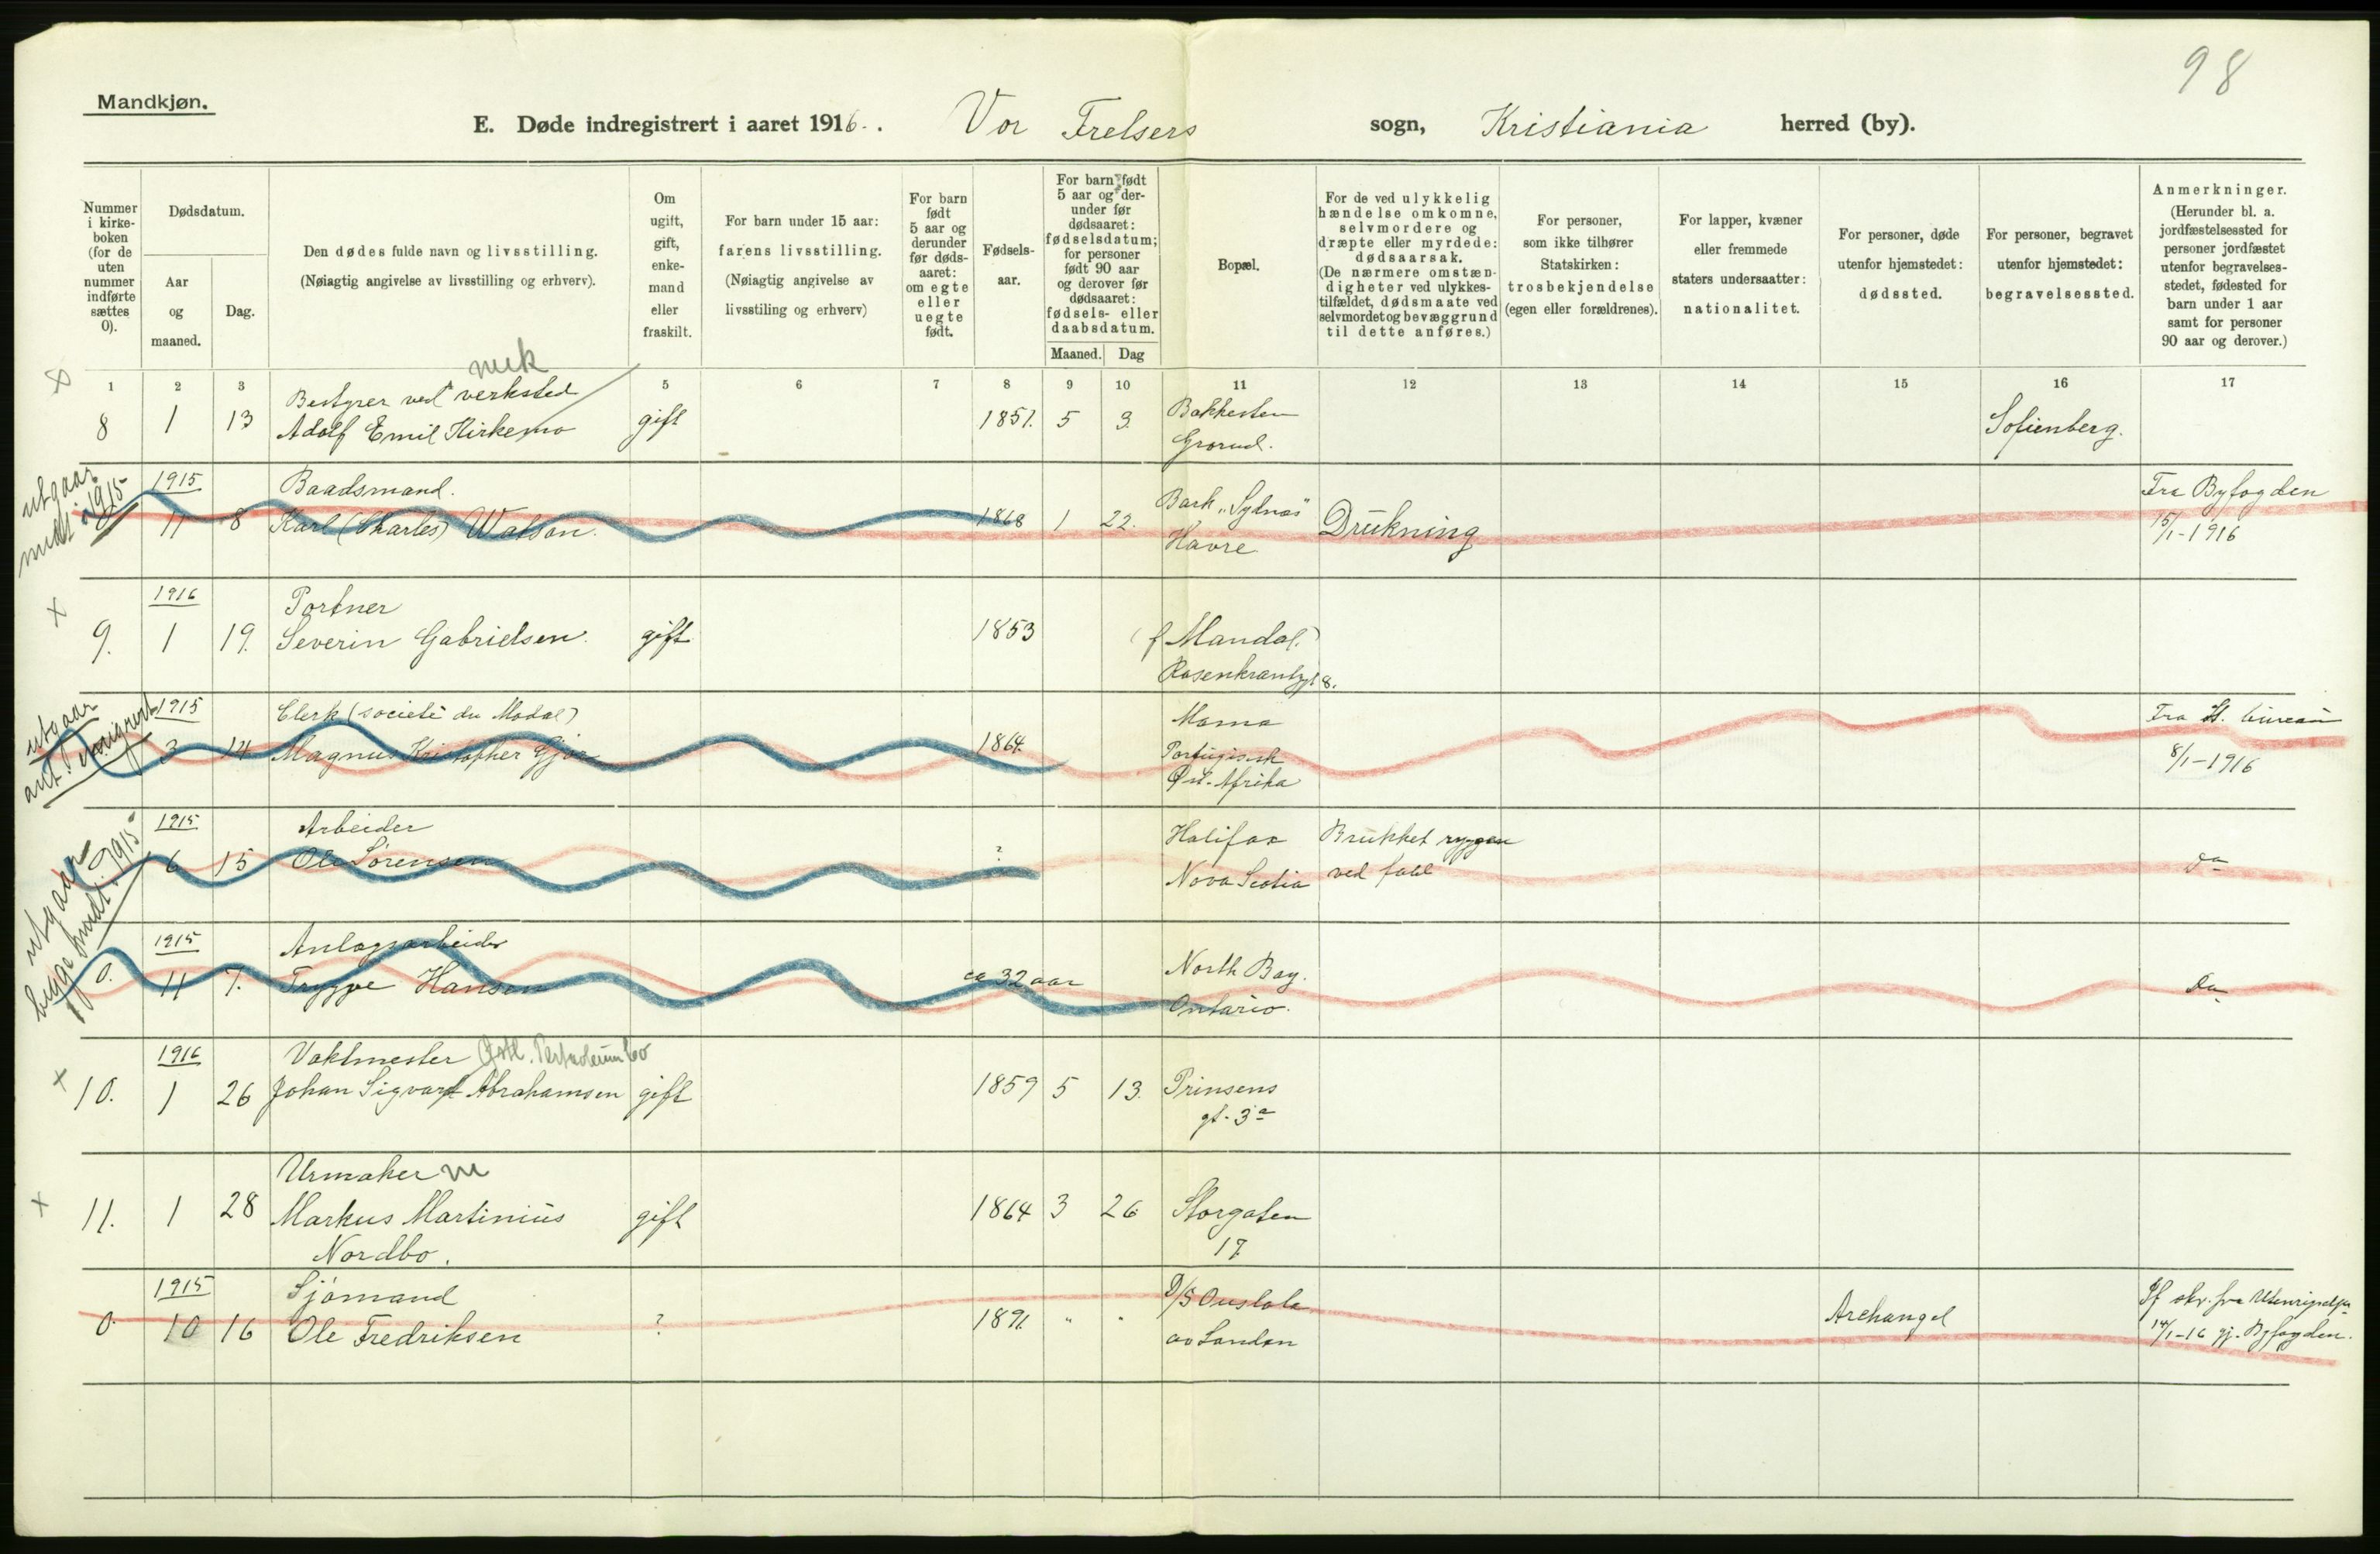 98
Mandkjøn.
E. Døde indregistrert i aaret 1916. Vor Frelsers sogn, Kristiania herred (by).
Nummer i kirkeboken (for de uten nummer indførte sættes 0).
Dødsdatum.
Aar og maaned.
Dag.
Den dødes fulde navn og livsstilling.
(Nøiagtig angivelse av livsstilling og erhverv).
Om ugift, gift, enkemand eller fraskilt.
For barn under 15 aar: farens livsstilling.
(Nøiagtig angivelse av livsstiling og erhverv)
For barn født 5 aar og derunder før dødsaaret: om egte eller uegte født.
Fødselsaar.
For barn født 5 aar og derunder før dødsaaret: fødselsdatum; for personer født 90 aar og derover før dødsaaret: fødsels- eller daabsdatum.
Maaned. Dag
Bopæl.
For de ved ulykkelig hændelse omkomne, selvmordere og dræpte eller myrdede: dødsaarsak.
(De nærmere omstændigheter ved ulykkestilfældet, dødsmaate ved selvmordet og bevæggrund til dette anføres.)
For personer, som ikke tilhører Statskirken: trosbekjendelse (egen eller forældrenes).
For lapper, kvæner eller fremmede staters undersaatter: nationalitet.
For personer, døde utenfor hjemstedet: dødssted.
For personer, begravet utenfor hjemstedet: begravelsessted.
Anmerkninger.
(Herunder bl. a. jordfæstelsessted for personer jordfæstet utenfor begravelsesstedet, fødested for barn under 1 aar samt for personer 90 aar og derover.)
1 2 3 5 6 7 8 9 10 11 12 13 14 15 16 17
mek
Bestyrer ved verksted
8 1 13 Adolf Emil Kirkemo gift 1851. 5 3. Bakkesten
Grorud. Sofienberg.
utgaar
medt i 1915
1915 Baadsmand.
11 8 Karl (Charles) Watson. 1868 1 22. Bark „Sylnæs"
Havre Drukning Fra Byfogden
15/1-1916
1916 Portner
9. 1 19. Severin Gabrielsen. gift 1853 (f Mandal.)
Rosenkrantzgt 8.
utgaar
ant. emigrert
1915 Clerk (societé du Madal)
3 14 Magnus Kristopher Gjør 1864 Mama
Portugisisk
Øst-Afrika Fra St. bureau
8/1-1916
utgaar
begge medt. i 1915
1915 Arbeider
6 15 Ole Sørensen ? Halifax
Nova Scotia Brukket ryggen
ved fald Do
1915 Anlægsarbeider
0. 11 7. Trygve Hansen ca 32 aar North Bay.
Ontario. Do
1916 Vaktmester Østl. Petroleum Co
10. 1 26 Johan Sigvart Abrahamsen gift 1859 5 13. Prinsens
gt. 3a
Urmaker m
11. 1 28 Markus Martinius gift 1864 3 26 Storgaten
Nordbo. 17
1915 Sjømand
0. 10 16 Ole Fredriksen ? 1891. " " D/S
av London Archangel If skr. fra
14/1-16 gj. Byfogden.